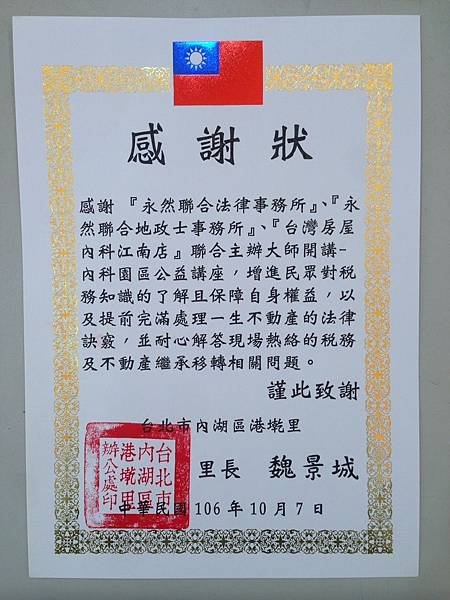 感謝狀
感謝『永然聯合法律事務所』、『永
然聯合地政士事務所』、『台灣房屋
內科江南店』聯合主辦大師開講-
內科園區公益講座，增進民眾對稅
務知識的了解且保障自身權益，以
及提前完滿處理一生不動產的法律
訣竅，並耐心解答現場熱絡的稅務
及不動產繼承移轉相關問題。
謹此致謝
台北市內湖區港墘里
里長 魏景城
中華民國106年10月7日
台北市
內湖區
港墘里
辦公處印